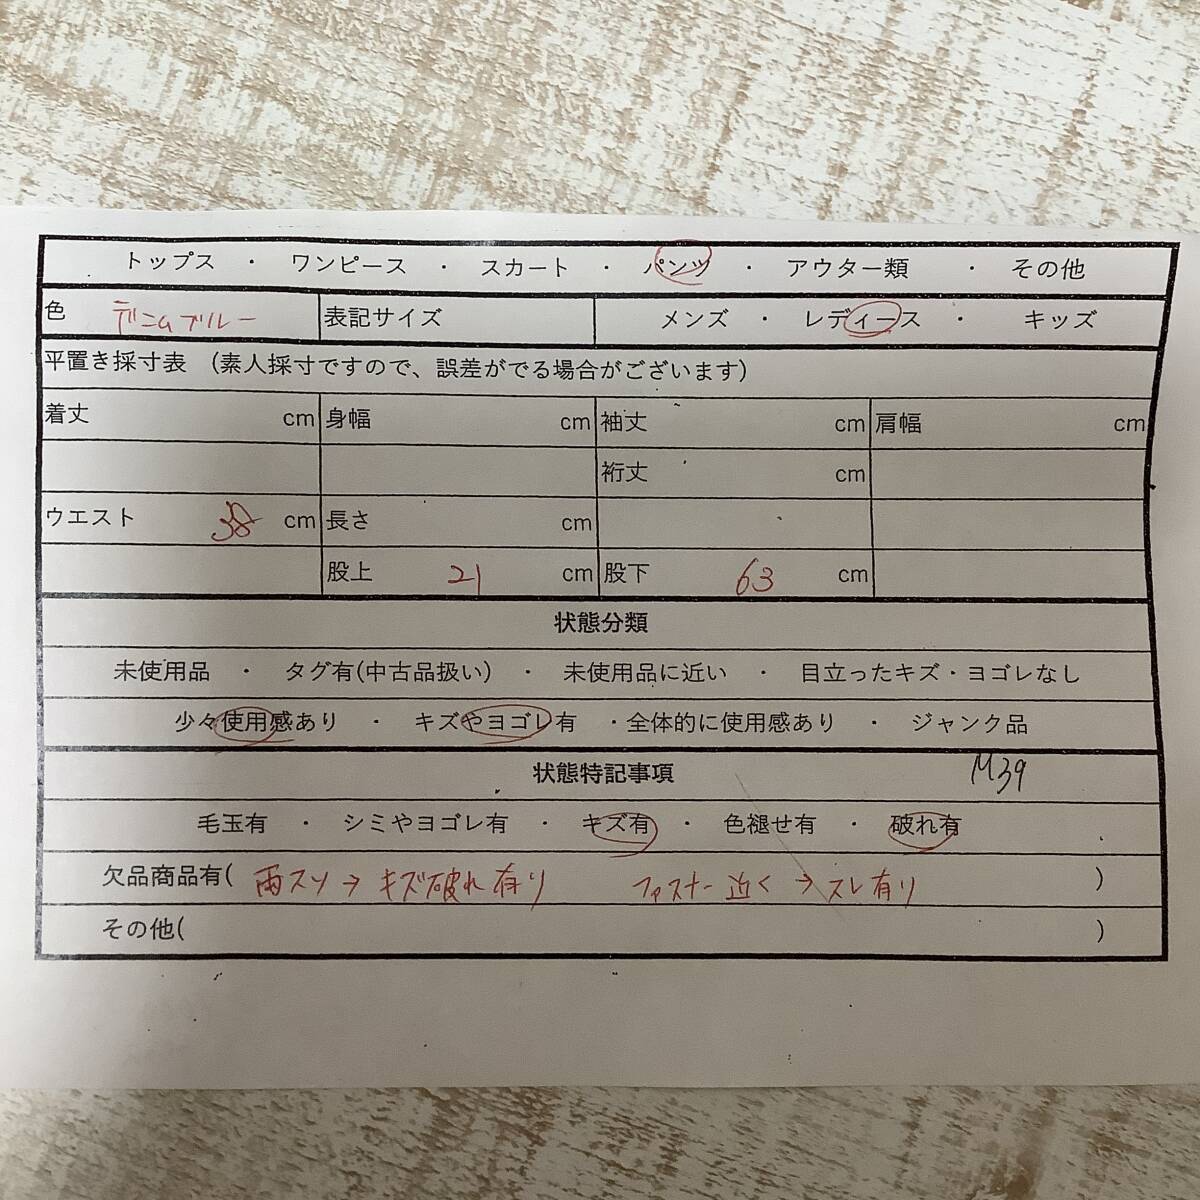 トップス ・ ワンピース ・ スカート ・ パンツ ・ アウター類 ・ その他
色 デニムブルー 表記サイズ メンズ ・ レディース ・ キッズ
平置き採寸表 (素人採寸ですので、誤差がでる場合がございます)
着丈 cm 身幅 cm 袖丈 cm 肩幅 cm
裄丈 cm
ウエスト 38 cm 長さ cm
股上 21 cm 股下 63 cm
状態分類
未使用品 ・ タグ有(中古品扱い) ・ 未使用品に近い ・ 目立ったキズ・ヨゴレなし
少々使用感あり ・ キズやヨゴレ有 ・全体的に使用感あり ・ ジャンク品
状態特記事項 M39
毛玉有 ・ シミやヨゴレ有 ・ キズ有 ・ 色褪せ有 ・ 破れ有
欠品商品有( 両スソ→キズ破れ有り ファスナー近く→スレ有り )
その他( )